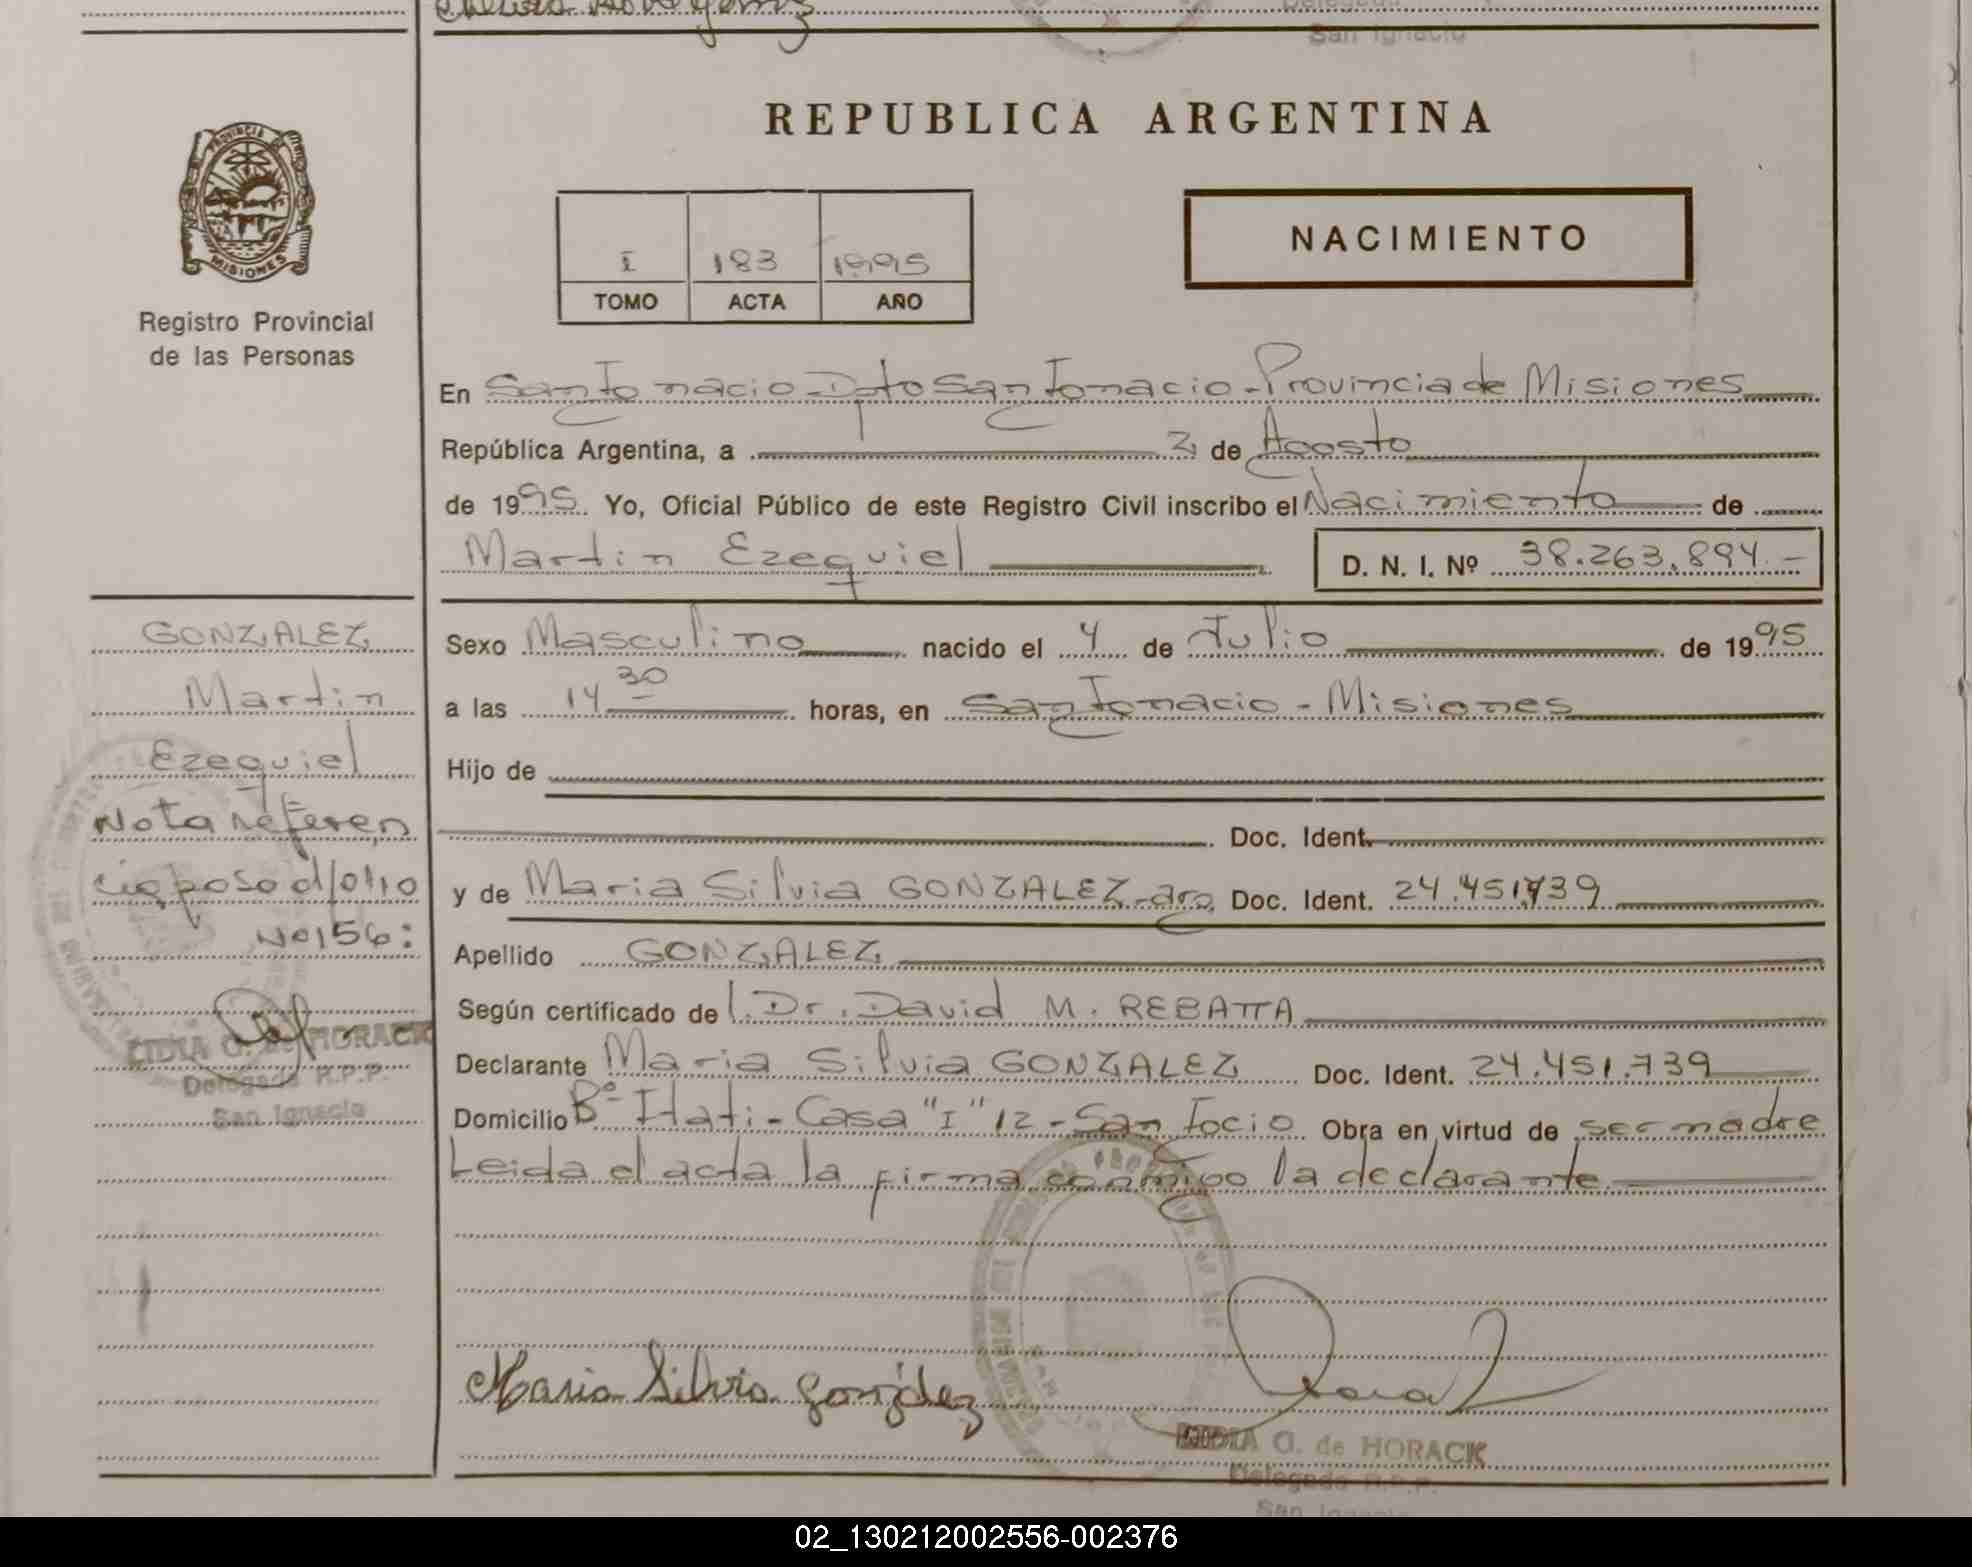 San Ignacio
REPUBLICA ARGENTINA
PROVINCIA
MISIONES
Registro Provincial
de las Personas
I 183 1995
TOMO ACTA AÑO
NACIMIENTO
En San Ignacio Dpto San Ignacio - Provincia de Misiones
República Argentina, a 2 de Agosto
de 1995. Yo, Oficial Público de este Registro Civil inscribo el Nacimiento de
Martin Ezequiel D. N. I. Nº 38.263.894.-
GONZALEZ
Martin
Ezequiel
Nota referen
cia paso al folio
Nº 156:
LIDIA O. de HORACK
Delegada R.P.P.
San Ignacio
Sexo Masculino nacido el 4 de Julio de 1995
a las 14 30 horas, en San Ignacio - Misiones
Hijo de
Doc. Ident.
y de Maria Silvia GONZALEZ - arg. Doc. Ident. 24.451.739
Apellido GONZALEZ
Según certificado de l. Dr. David M. REBATTA
Declarante Maria Silvia GONZALEZ Doc. Ident. 24.451.739
Domicilio Bº Itati - Casa "I" 12 - San Igcio Obra en virtud de ser madre
Leida el acta la firma conmigo la declarante
Maria Silvia González
LIDIA O. de HORACK
Delegada R.P.P.
San Ignacio
02_130212002556-002376